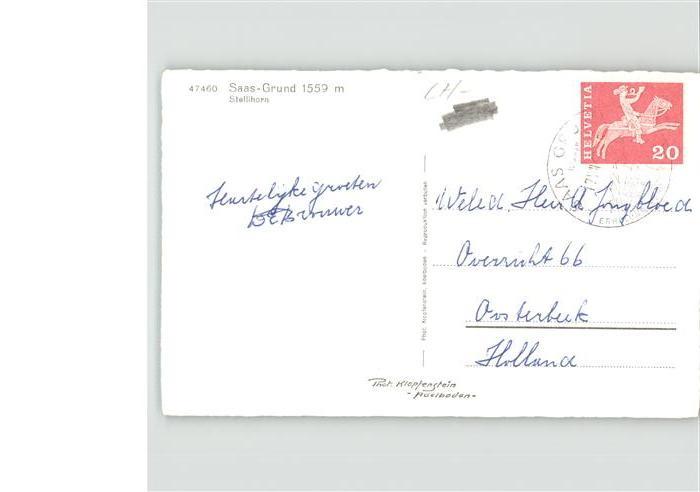 47460 Saas-Grund 1559 m
Stellihorn
CH-
HELVETIA
20
SAAS GR
Hartelijke groeten
Brouwer
Phot. Klopfenstein, Adelboden - Reproduktion verboten
Weled. Heer Jongbloed
Overzicht 66
Oosterbeek
Holland
Phot. Klopfenstein
- Adelboden -